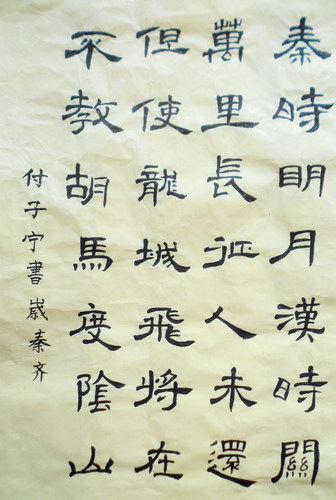 秦時明月漢時關
萬里長征人未還
但使龍城飛將在
不教胡馬度陰山
付子宁書嵗秦齐